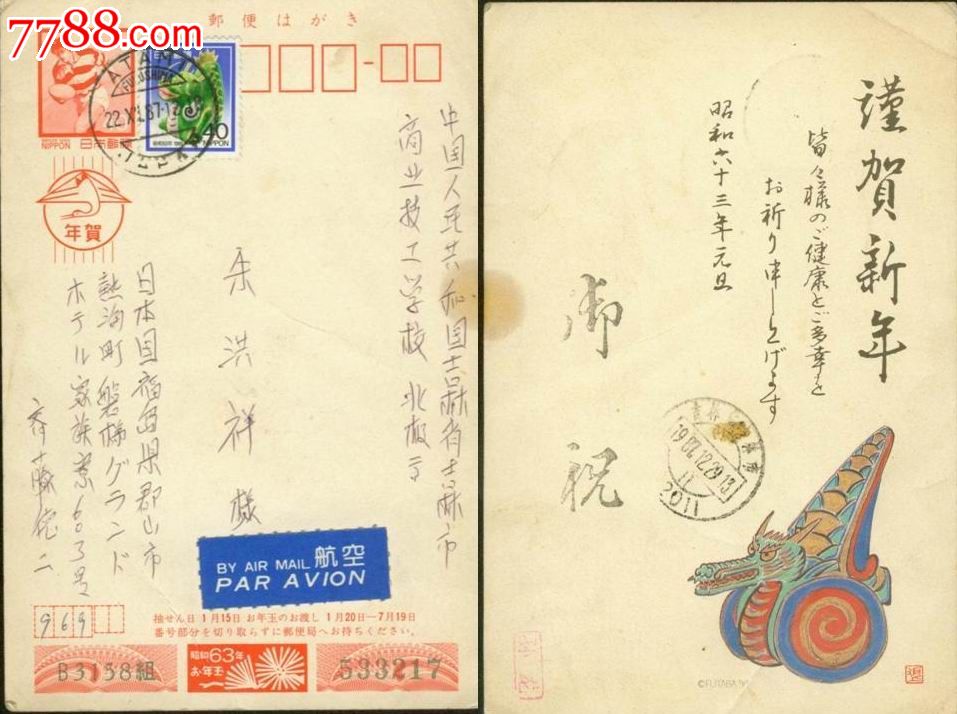 7788.com
郵便はがき
ATAMI
FUKUSHIMA
22.XII.87.12
40
NIPPON
NIPPON 日本郵便
年賀
中国人民共和国吉林省吉林市
商业技工学校 北极
洪祥様
日本国福島県郡山市
熱海町磐梯グランド
ホテル家族寮603号
BY AIR MAIL 航空
PAR AVION
969
抽せん日1月15日 お年玉のお渡し1月20日―7月19日
番号部分を切り取らずに郵便局へお持ちください。
B3158組
昭和63年
お年玉
533217
謹賀新年
皆々様のご健康とご多幸を
お祈り申し上げます
昭和六十三年元旦
御祝
吉林
1987.12.29.13
11
2011
©FUTABA